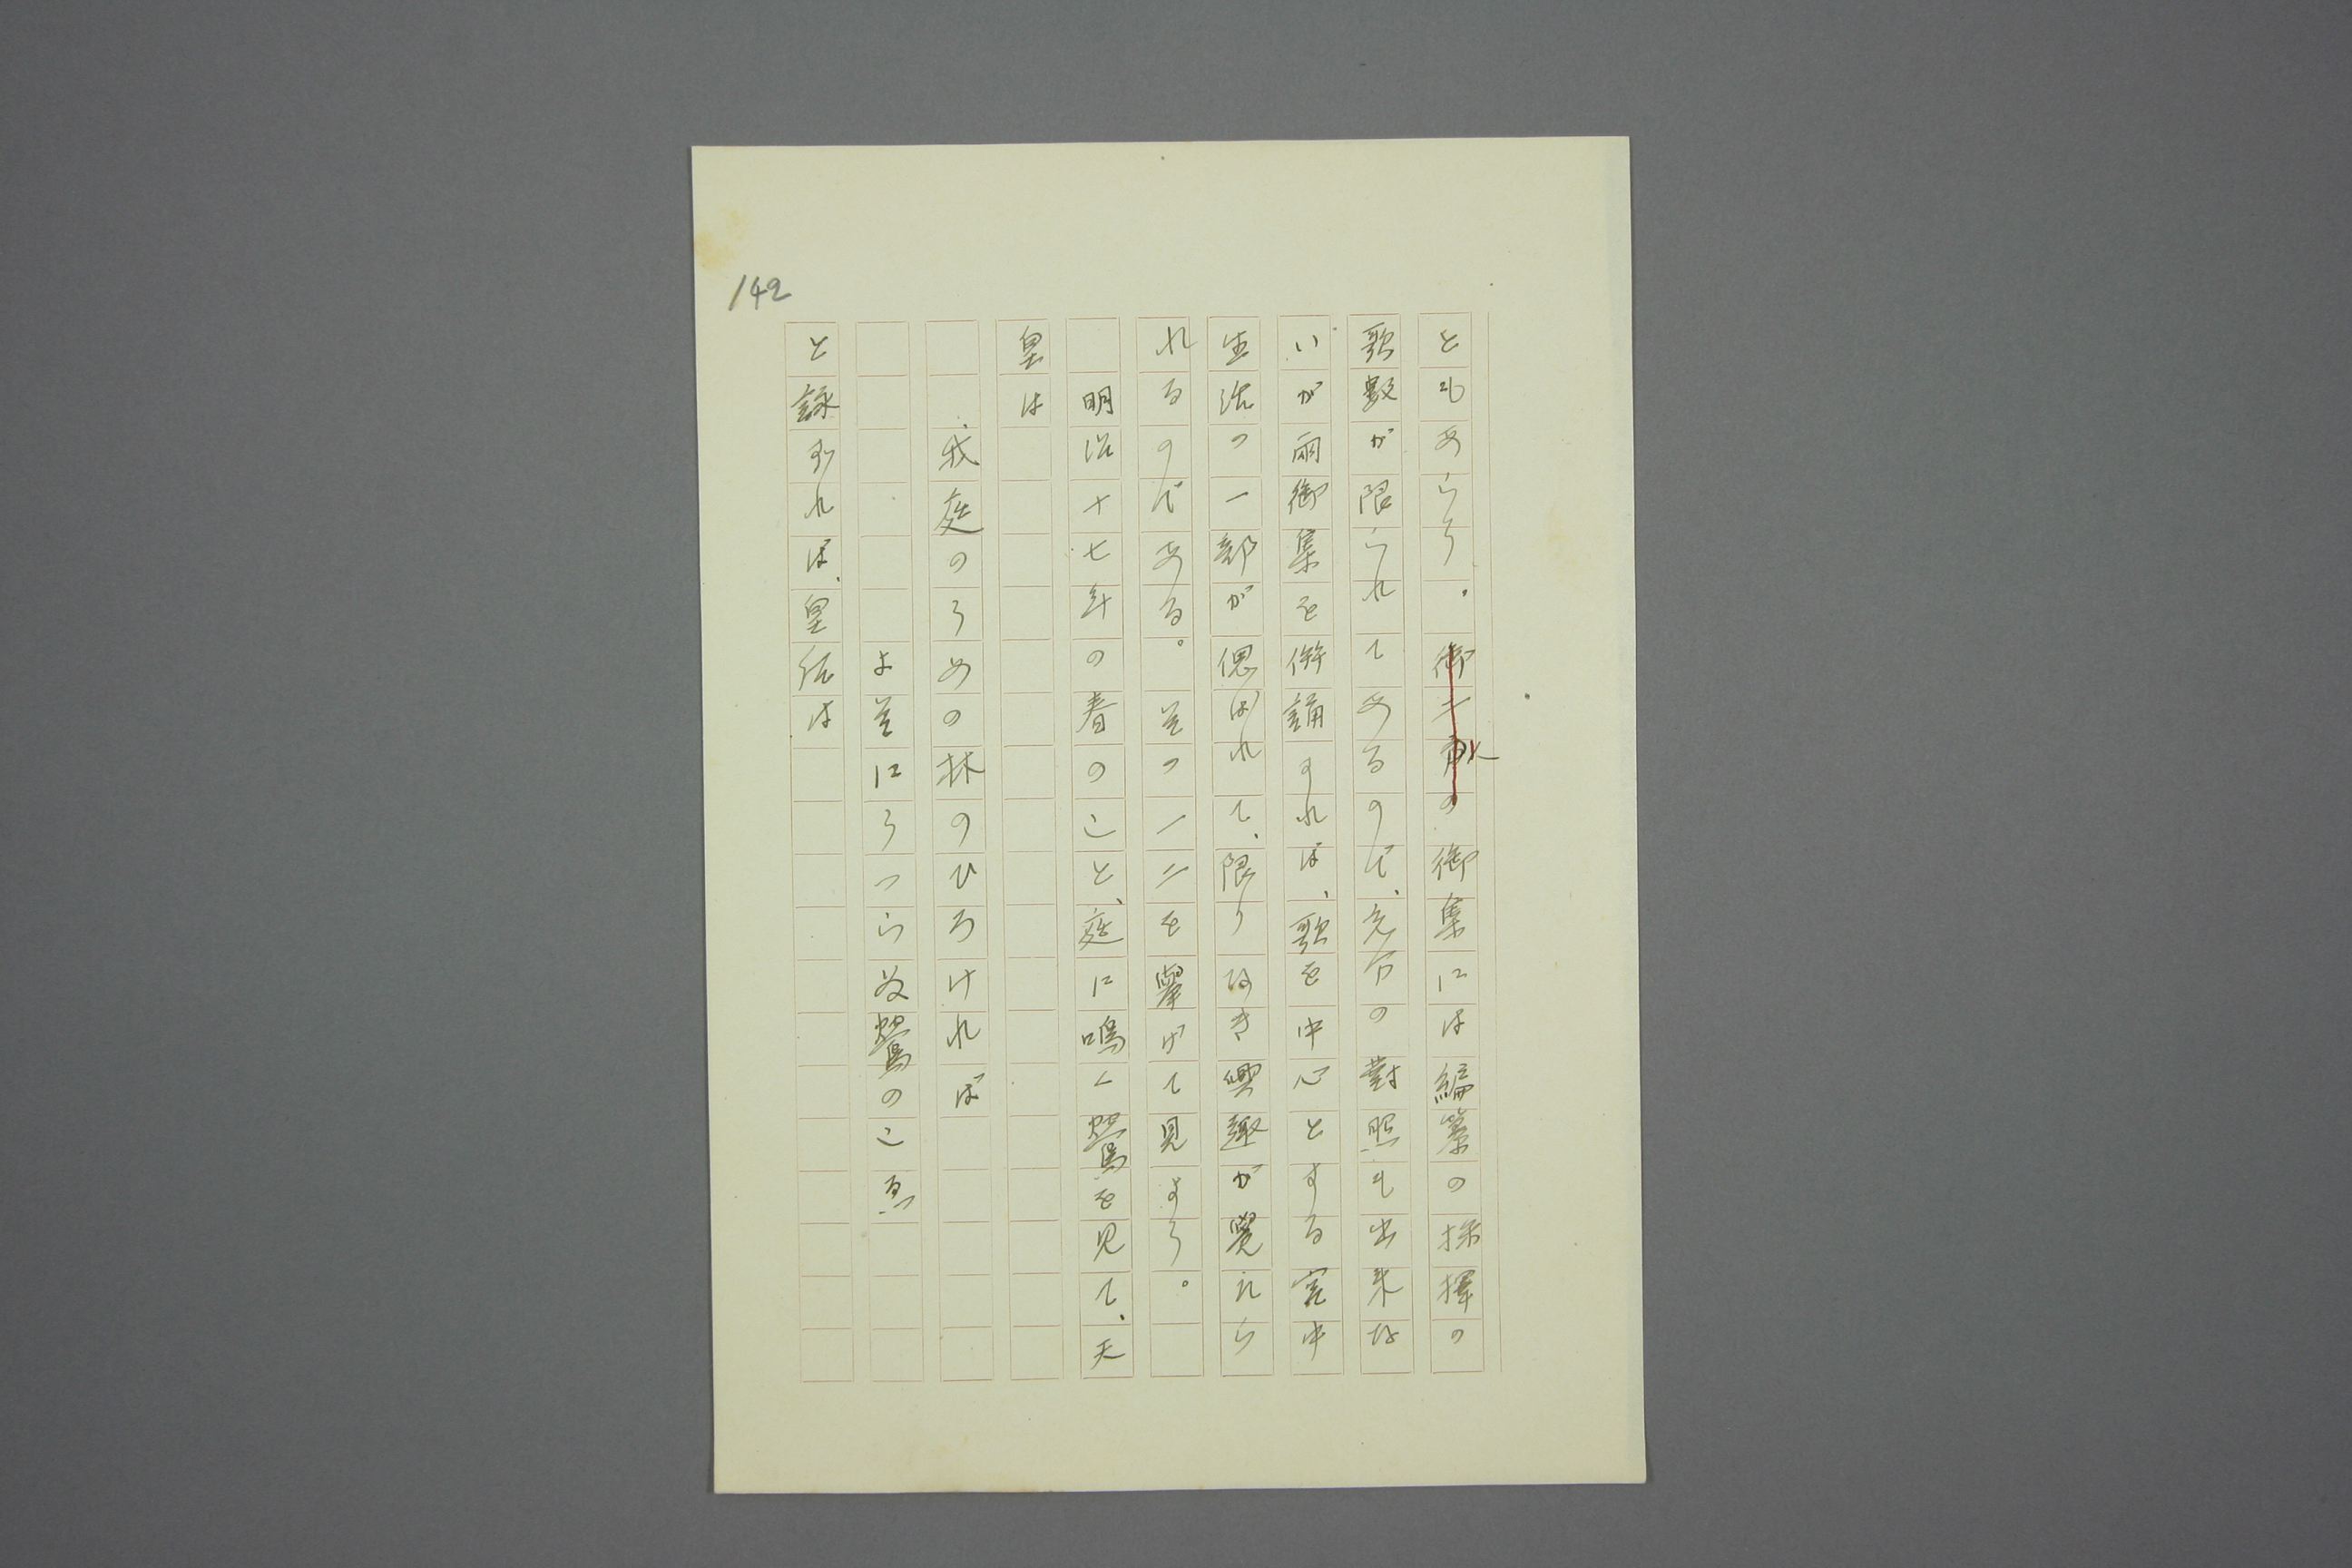 142
ともあらう。御二方の御集には編纂の採擇の
歌數が限られてあるので、充分の對照も出來な
いが兩御集を併誦すれば、歌を中心とする宮中
生活の一部が偲ばれて、限りなき興趣が覺えら
れるのである。その一二を擧げて見よう。
明治十七年の春のこと、庭に鳴く鶯を見て、天
皇は
我庭のうめの林のひろければ
よそにうつらぬ鶯のこゑ
と詠まれば、皇后は